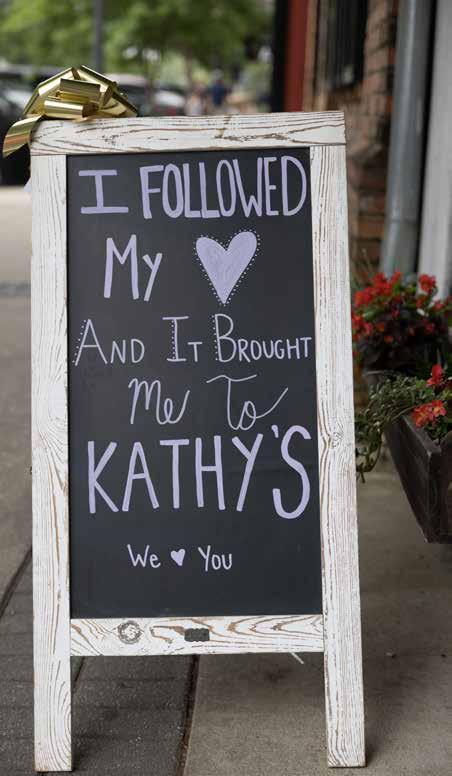 I FOLLOWED
My ♥
AND IT BROUGHT
Me To
KATHY'S
We ♥ You